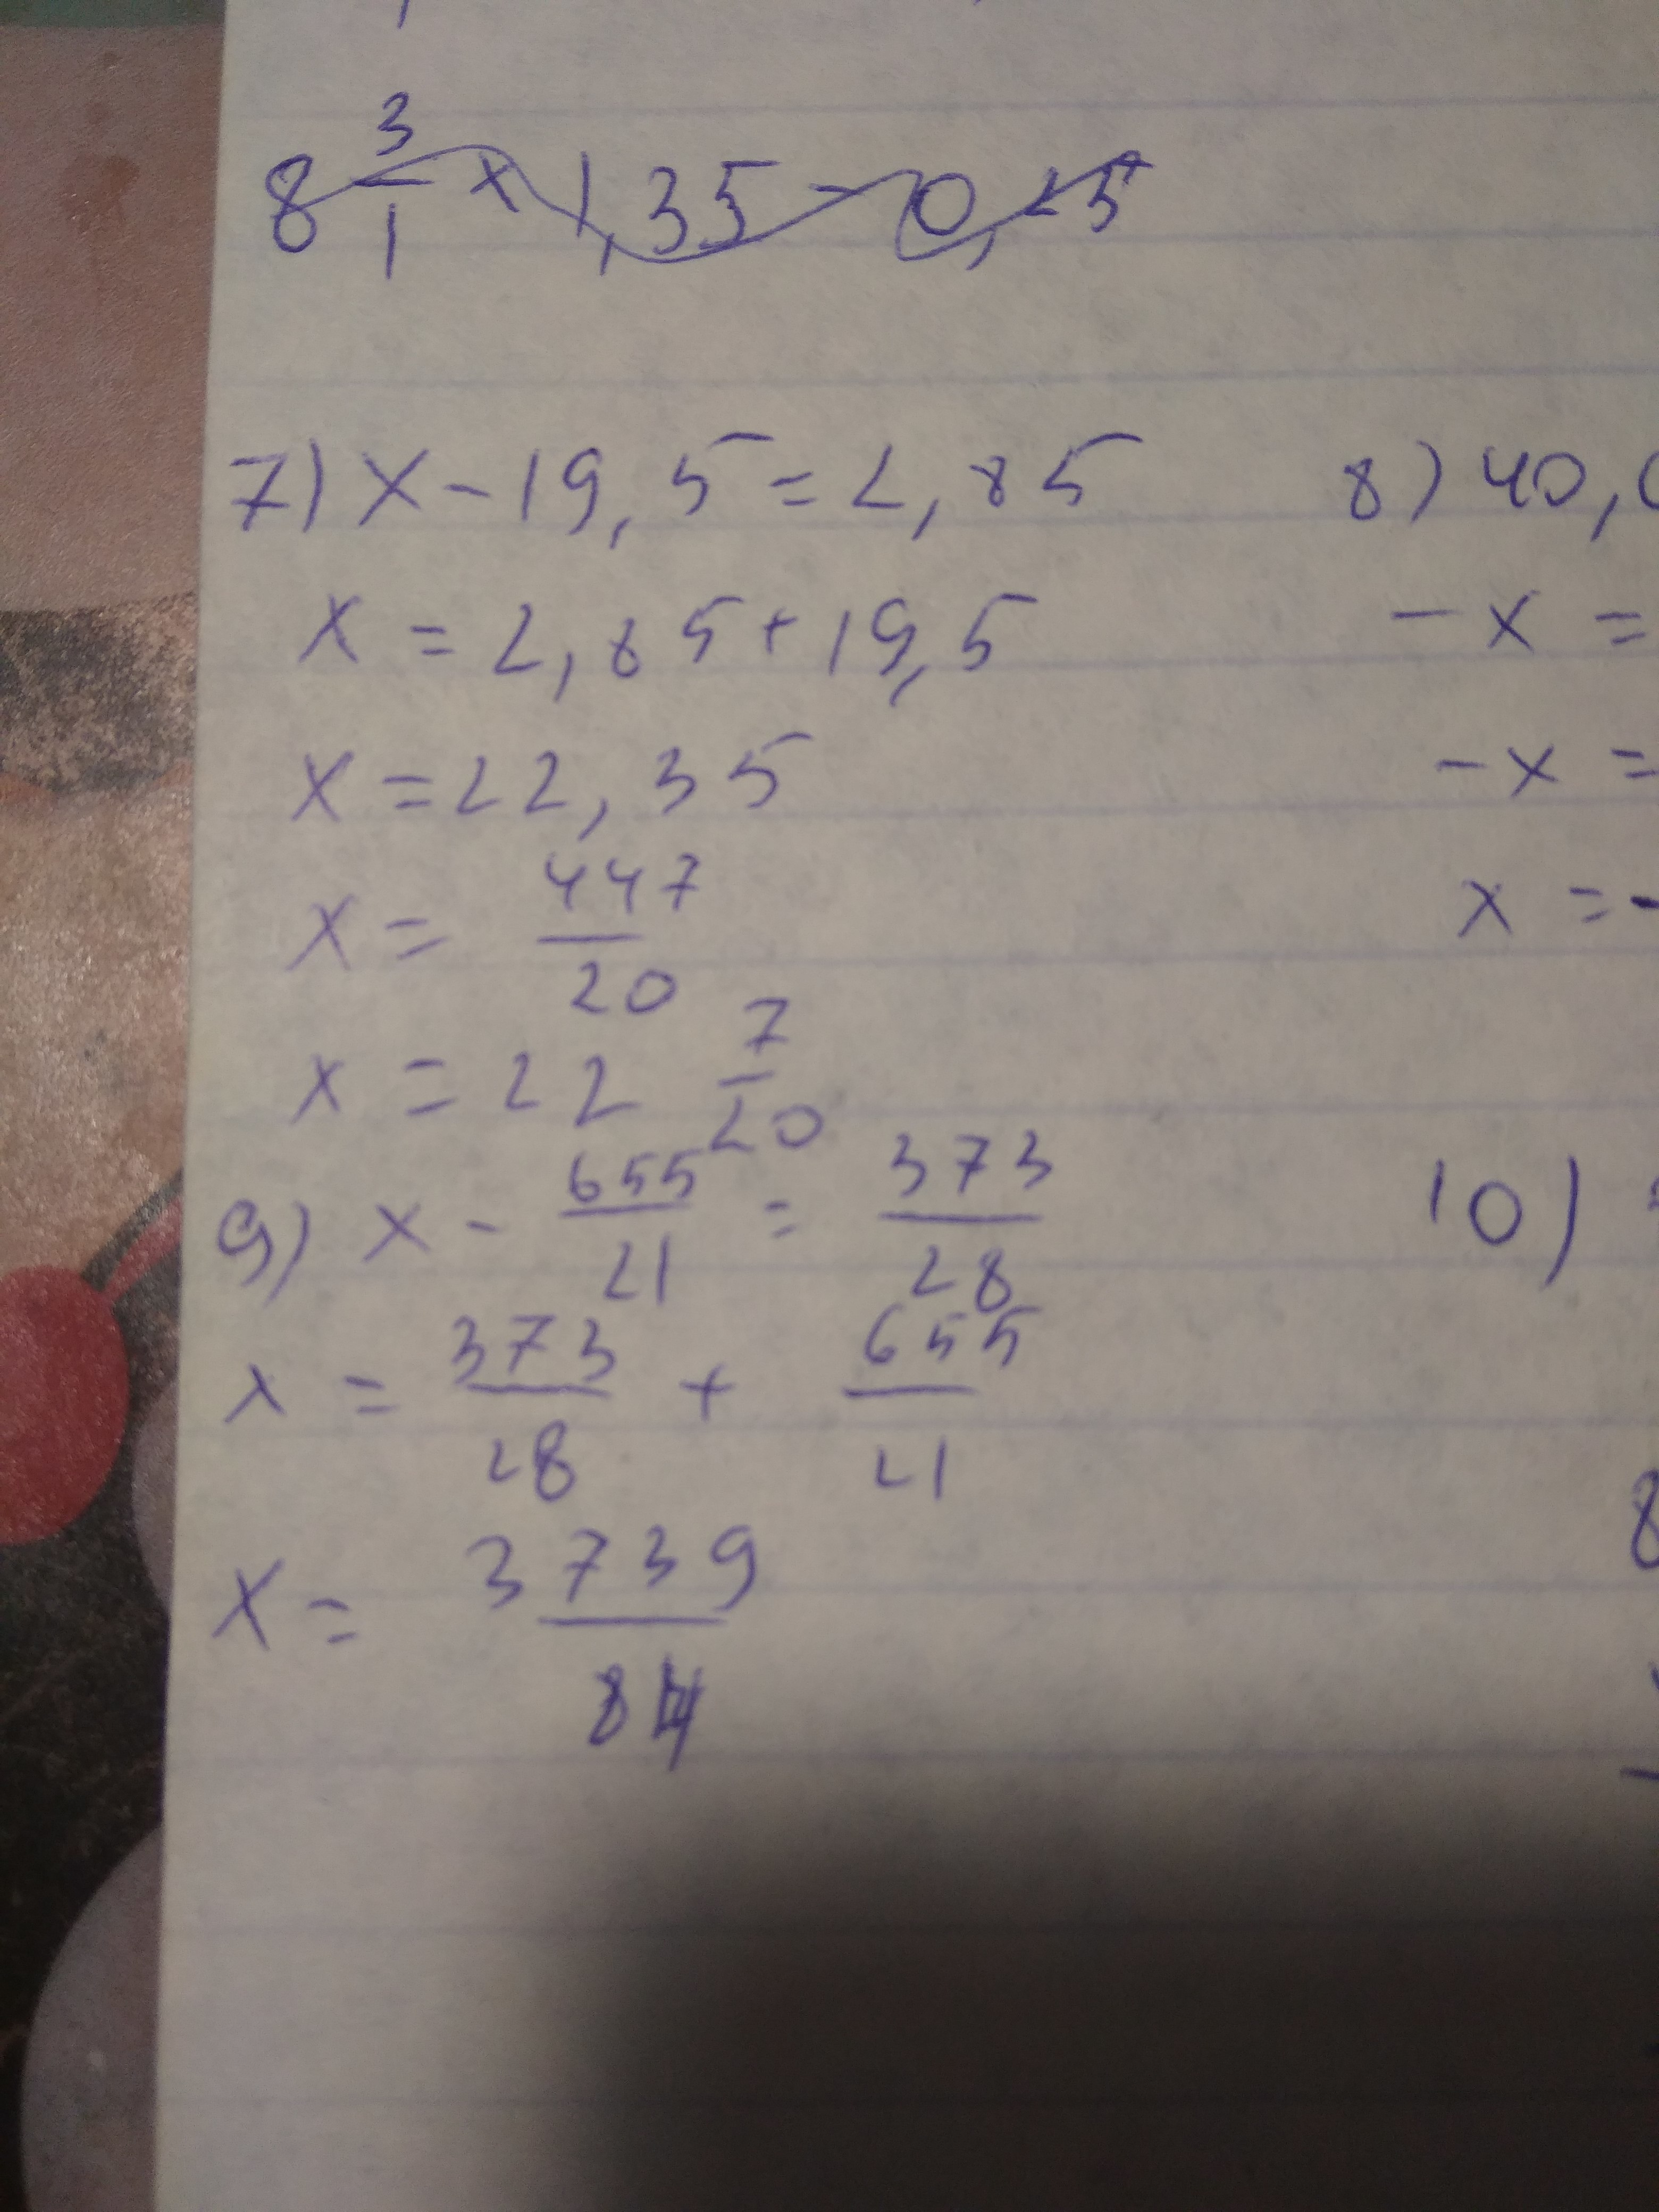 8 3/1 x 1,35 - 0,25
7) x - 19,5 = 2,85
x = 2,85 + 19,5
x = 22,35
x = 447/20
x = 22 7/20
9) x - 655/21 = 373/28
x = 373/28 + 655/21
x = 3739/84
8) 40,
- x =
- x =
x = -
10)
8